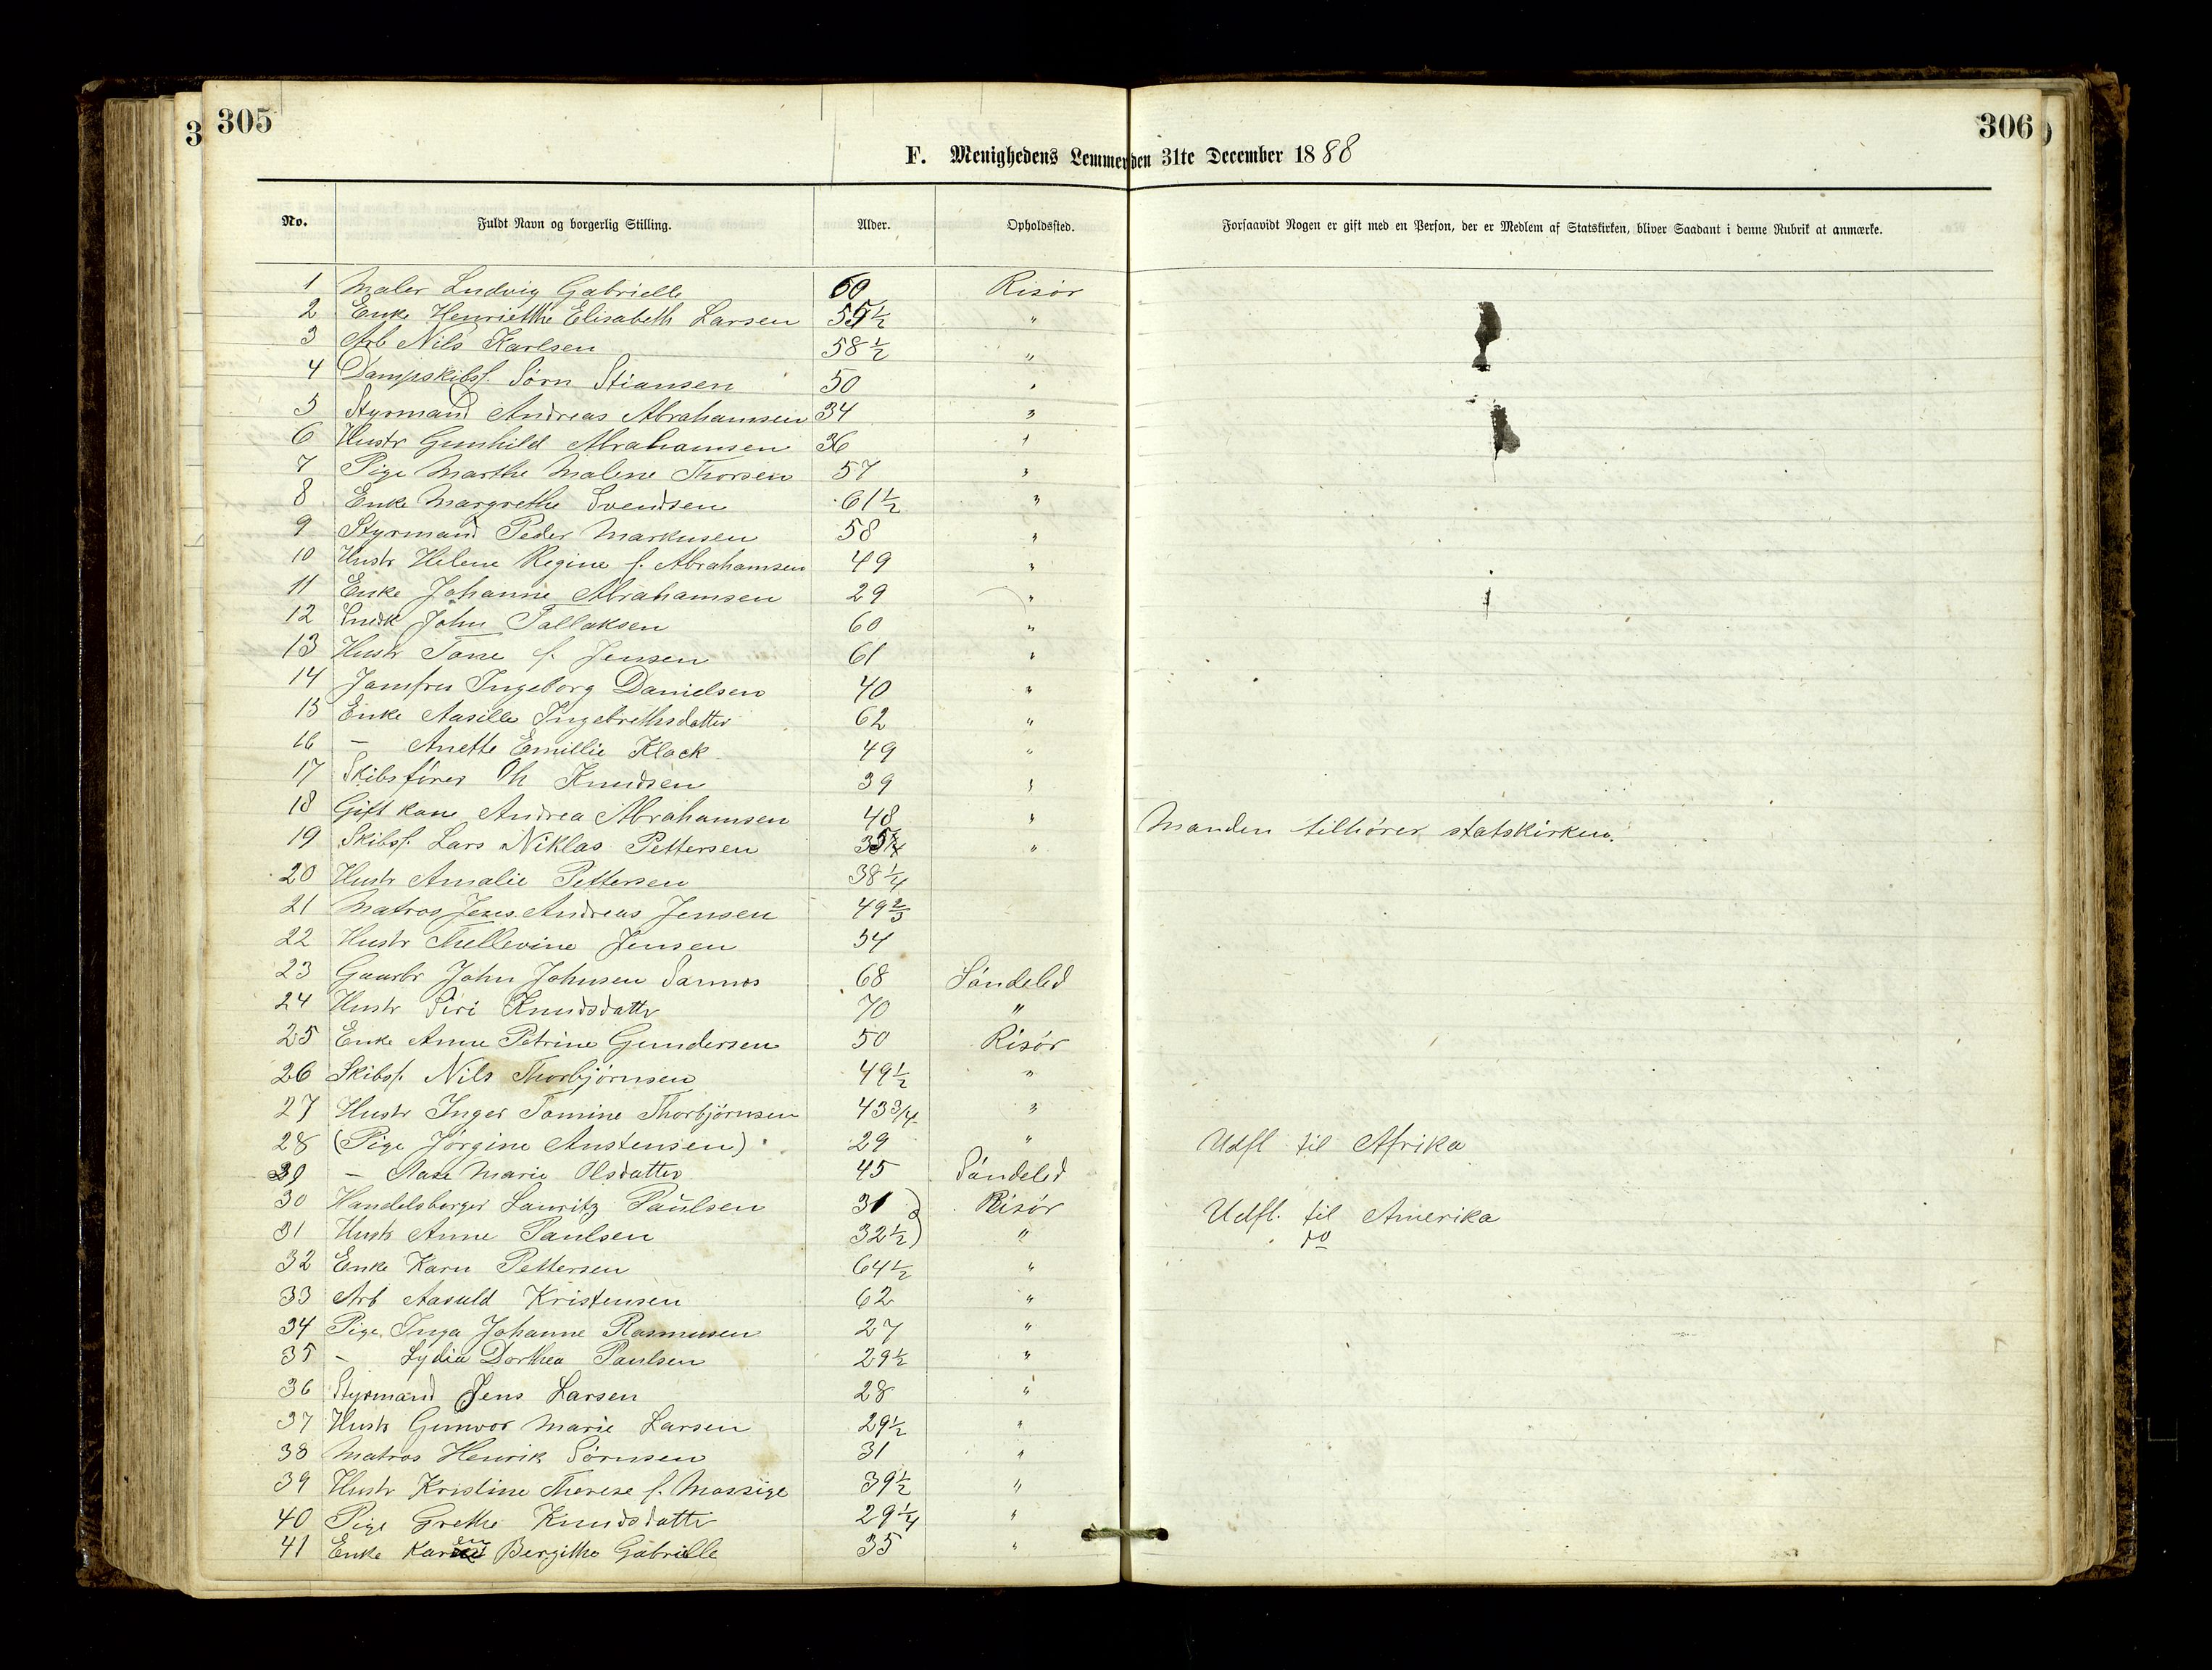 3
305
306
F. Menighedens Lemmer den 31te December 1888
No. Fuldt Navn og borgerlig Stilling. Alder. Opholdssted. Forsaavidt Nogen er gift med en Person, der er Medlem af Statskirken, bliver Saadant i denne Rubrik at anmærke.
1 Maler Ludvig Gabrielle 60 Risör
2 Enke Henriette Elisabeth Larsen 59½ "
3 Arb Nils Karlsen 58½ "
4 Dampskibsf. Sörn Stiansen 50 "
5 Styrmand Andreas Abrahamsen 34 "
6 Hustr Gunhild Abrahamsen 36 "
7 Pige Marthe Malene Thorsen 57 "
8 Enke Margrethe Svendsen 61½ "
9 Styrmand Peder Markusen 58 "
10 Hustr Helene Regine f. Abrahamsen 49 "
11 Enke Johanne Abrahamsen 29 "
12 Snedk John Tallaksen 60 "
13 Hustr Tone f. Jensen 61 "
14 Jomfru Ingeborg Danielsen 40 "
15 Enke Aasille Ingebrethsdatter 62 "
16 – Anette Emillie Klock 49 "
17 Skibsförer Oh Knudsen 39 "
18 Gift kone Andrea Abrahamsen 48 " Manden tilhörer statskirken.
19 Skibsf. Lars Niklas Pettersen "
20 Hustr Amalie Pettersen 38¼
21 Matros Jens Andreas Jensen 49⅔
22 Hustr Thellevine Jensen 54
23 Gaardbr John Johnsen Sannes 68 Söndeled
24 Hustr Siri Knudsdatter 70 "
25 Enke Anne Petrine Gundersen 50 Risör
26 Skibsf. Nils Thorbjörnsen 49½ "
27 Hustr Inger Tomine Thorbjörnsen 43 3/4 "
28 (Pige Jörgine Austensen) 29 " Udfl til Afrika
29 – Aase Marie Olsdatter 45 Söndeled
30 Handelsborger Lauritz Paulsen 31 Risör Udfl. til Amerika
31 Hustr Anne Paulsen 32½ " do
32 Enke Karn Pettersen 64½ "
33 Arb Aasuld Kristensen 62 "
34 Pige Inga Johanne Rasmusen 27 "
35 – Lydia Dorthea Paulsen 29½ "
36 Styrmand Jens Larsen 28 "
37 Hustr Gunvor Marie Larsen 29½ "
38 Matros Henrik Sörnsen 31 "
39 Hustr Kristine Therese f. Mossige 39½ "
40 Pige Grethe Knudsdatter 29¼ "
41 Enke Karen Bergitthe Gabrielle 35 "